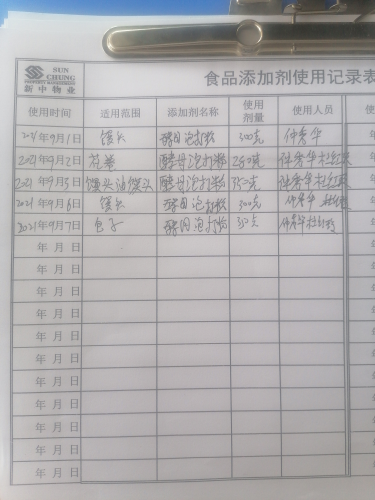 SUN
CHUNG
PROPERTY MANAGEMENT
新中物业
食品添加剂使用记录表
使用时间 适用范围 添加剂名称 使用剂量 使用人员
2021年9月1日 馒头 酵母泡打粉 300克 仲秀华
2021年9月2日 花卷 酵母泡打粉 250克 仲秀华杜红
2021年9月3日 馒头油馒头 酵母泡打粉 350克 仲秀华杜红
2021年9月6日 馒头 酵母泡打粉 300克 仲秀华
2021年9月7日 包子 酵母泡打粉 350克 仲秀华杜红
年 月 日
年 月 日
年 月 日
年 月 日
年 月 日
年 月 日
年 月 日
年 月 日
年 月 日
年 月 日
年 月 日